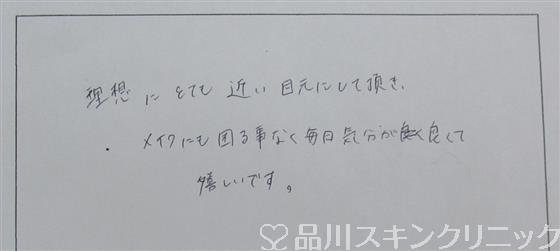 理想にとても近い目元にして頂き、
メイクにも困る事なく毎日気分が良くて
嬉しいです。
品川スキンクリニック